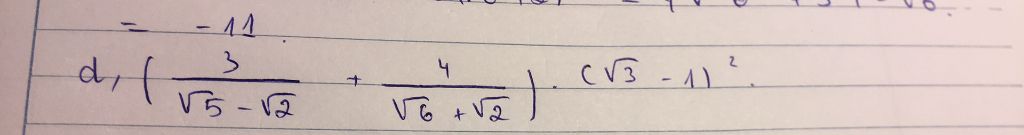 = -11.
d, ( 3/(√5 - √2) + 4/(√6 + √2) ) . (√3 - 1)².